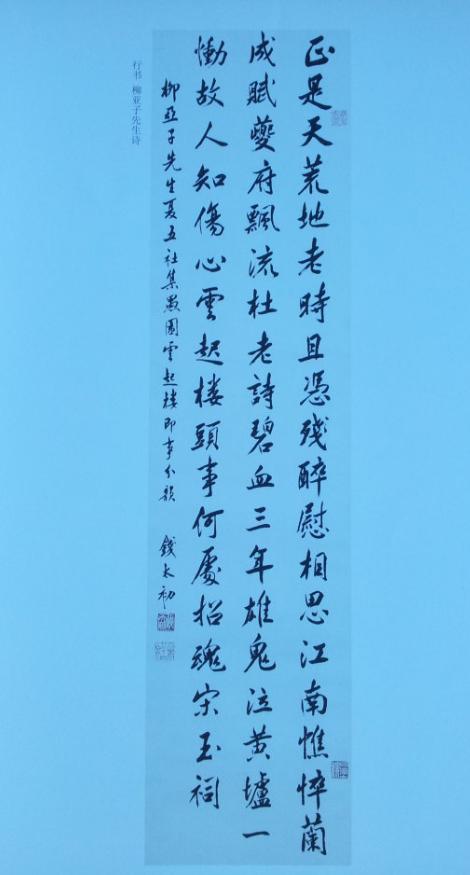 正是天荒地老時且憑殘醉慰相思江南憔悴蘭
成賦夔府飄流杜老詩碧血三年雄鬼泣黃壚一
慟故人知傷心雲起楼頭事何處招魂宋玉祠
柳亞子先生夏五社集愚園雲起楼即事分韻 錢太初
行书 柳亚子先生诗